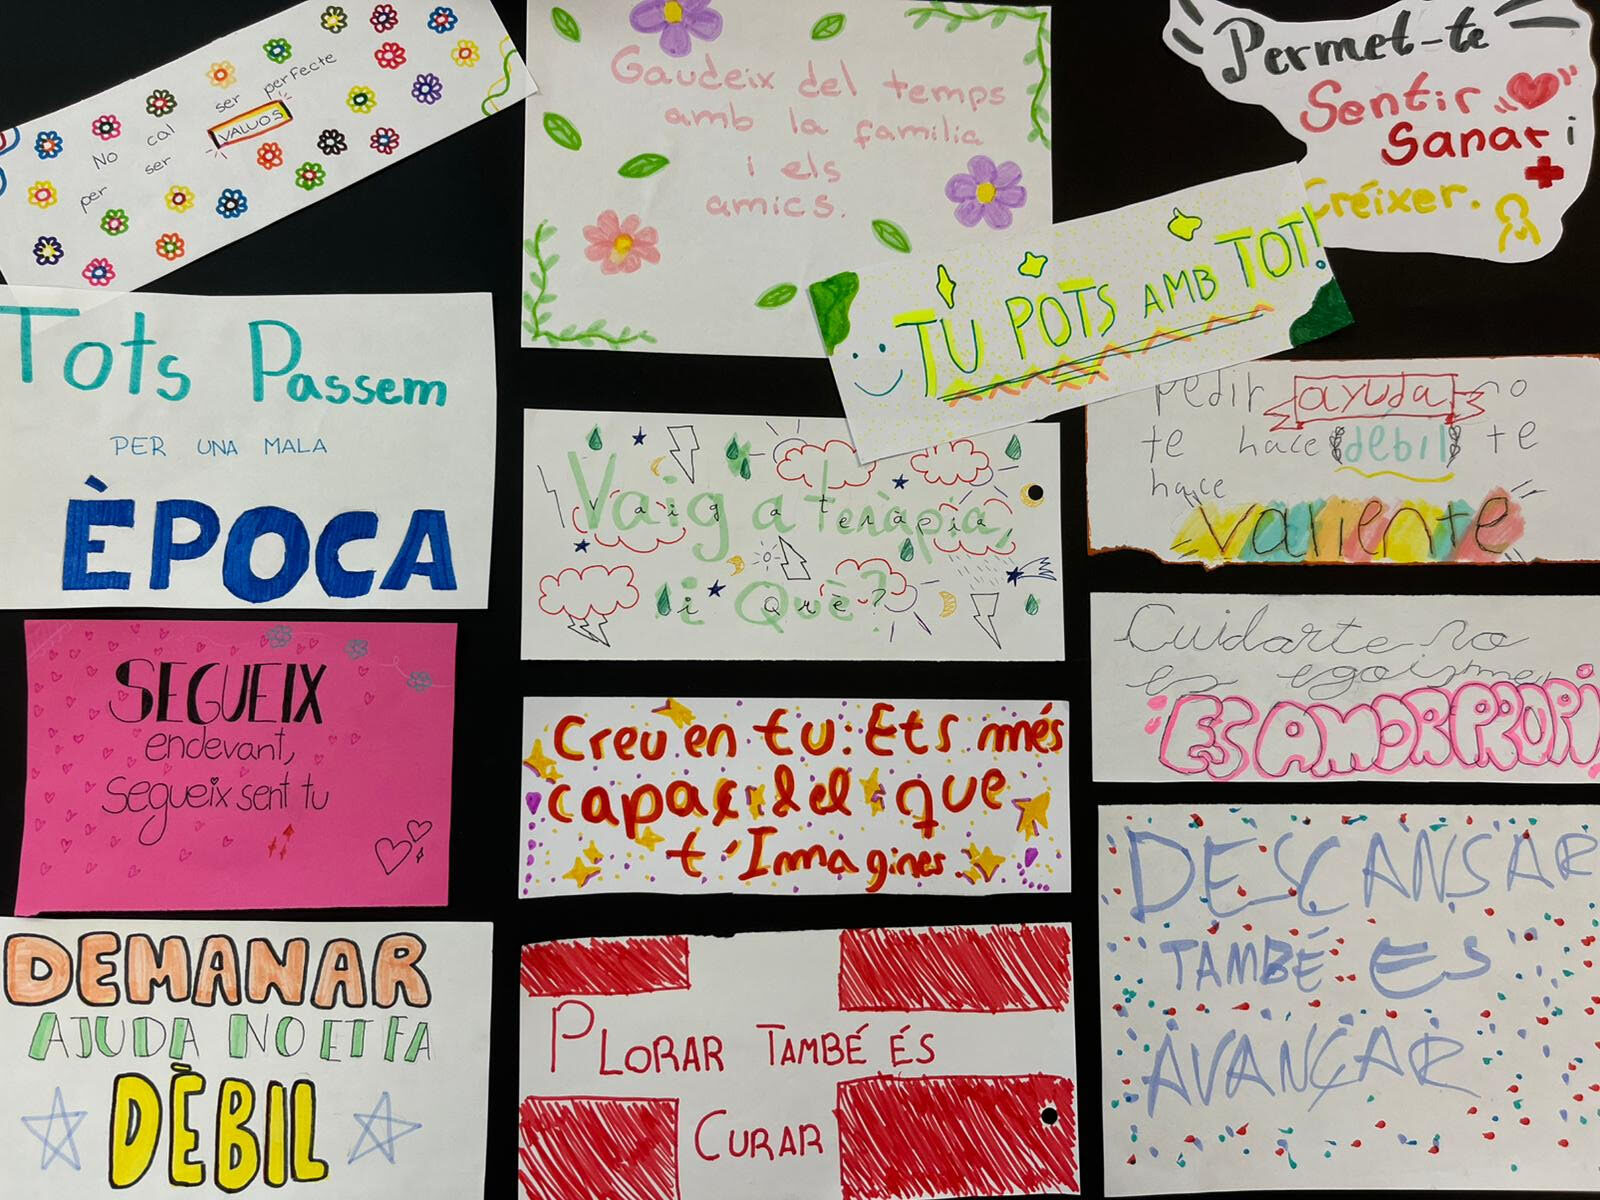 No cal ser perfecte
per ser VALUOS
Gaudeix del temps
amb la familia
i els
amics.
Permet-te
Sentir
Sanar i
Créixer.
TU POTS AMB TOT!
Tots Passem
PER UNA MALA
ÈPOCA
Vaig a teràpia,
i Què?
pedir ayuda no
te hace débil te
hace
valiente
SEGUEIX
endevant,
segueix sent tu
Creu en tu: Ets més
capaç del que
t'Immagines.
Cuidarte no
es egoisme,
ES AMOR PROPI
DEMANAR
AJUDA NO ET FA
DÈBIL
PLORAR TAMBÉ ÉS
CURAR
DESCANSAR
TAMBÉ ES
AVANÇAR